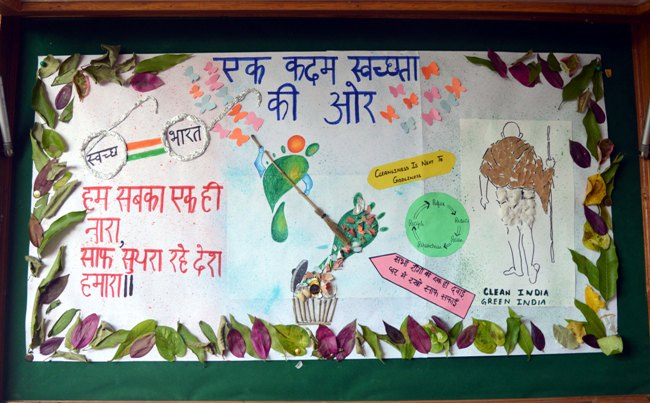 एक कदम स्वच्छता
की ओर
स्वच्छ
भारत
हम सबका एक ही
नारा,
साफ सुथरा रहे देश
हमारा॥
CLEANLINESS IS NEXT TO
GODLINESS
सभी रोगों की एक ही दवाई
घर में रखो साफ सफाई
CLEAN INDIA
GREEN INDIA